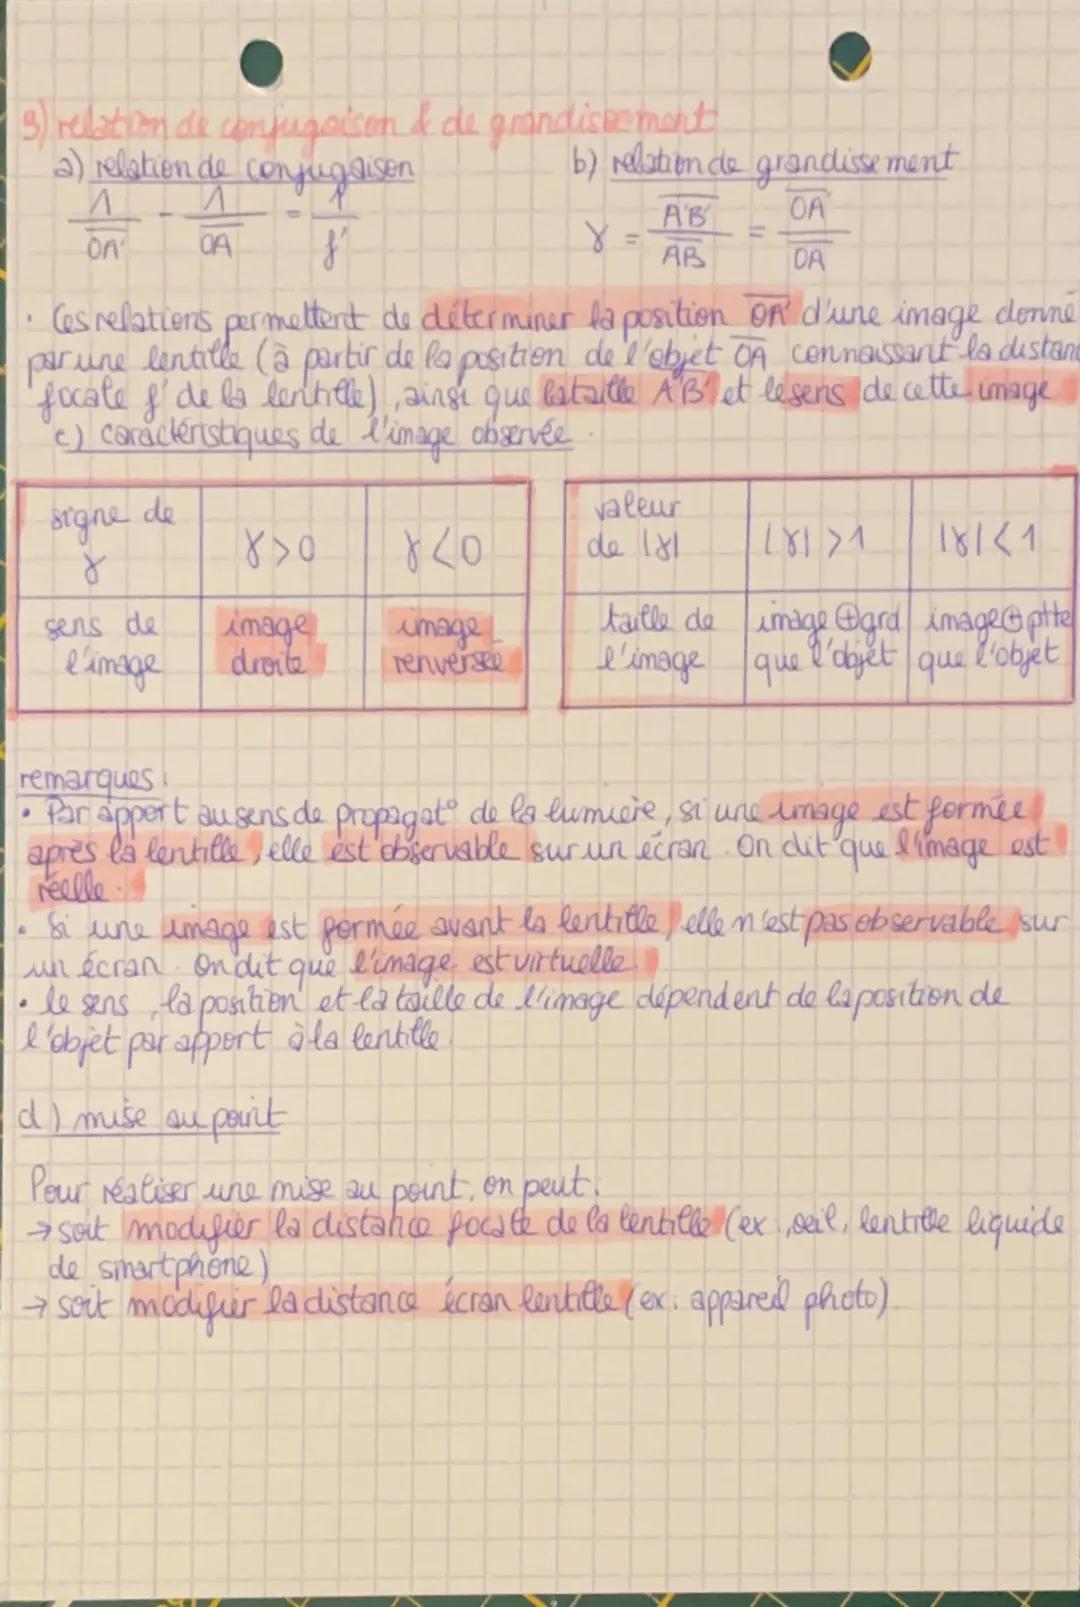 3) relation de conjugaison & de grandissement
a) relation de conjugaison
1/OA' - 1/OA = 1/f'
b) relation de grandissement
γ = A'B'/AB = OA'/OA
• Ces relations permettent de déterminer la position OA' d'une image donné
par une lentille (à partir de la position de l'objet OA connaissant la distance
focale f' de la lentille), ainsi que la taille A'B' et le sens de cette image
c) caractéristiques de l'image observée.
signe de γ | γ>0 | γ<0
sens de l'image | image droite | image renversée
valeur de |γ| | |γ|>1 | |γ|<1
taille de l'image | image ⊕ grd que l'objet | image ⊕ ptte que l'objet
remarques:
• Par apport au sens de propagat° de la lumière, si une image est formée
après la lentille, elle est observable sur un écran. On dit que l'image est
réelle.
• Si une image est formée avant la lentille, elle n'est pas observable sur
un écran. On dit que l'image est virtuelle.
• le sens, la position et la taille de l'image dépendent de la position de
l'objet par apport à la lentille.
d) mise au point
Pour réaliser une mise au point, on peut:
→ soit modifier la distance focale de la lentille (ex: œil, lentille liquide
de smartphone)
→ soit modifier la distance écran lentille (ex: appareil photo)